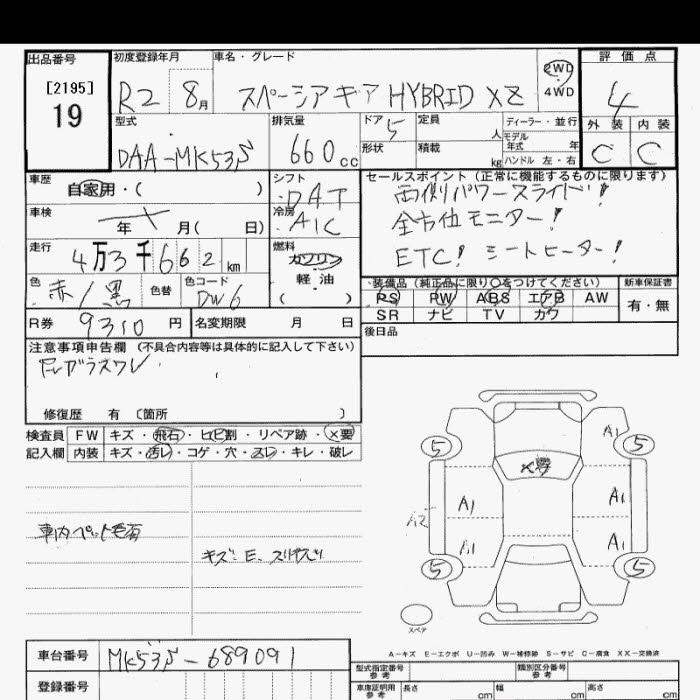 出品番号 初度登録年月 車名・グレード 2WD 4WD 評価点
[2195] 19 R2 8月 スペーシアギア HYBRID XZ 4
型式 排気量 ドア 5 定員 人 ディーラー・並行 外装 内装
DAA-MK53S 660cc 形状 積載 kg モデル年式 年 ハンドル 左・右 C C
車歴 自家用・( ) シフト DAT セールスポイント (正常に機能するものに限ります)
両側パワースライド!
車検 年 月( 日) 冷房 AIC 全方位モニター!
走行 4万3千662km 燃料 ガソリン 軽油 ( ) ETC! シートヒーター!
色 赤/黒 色替 色コード DW6 装備品 (純正品に限り○をつけてください) 新車保証書
PS PW ABS エアB AW 有・無
R券 9310円 名変期限 月 日 SR ナビ TV カワ
注意事項申告欄 (不具合内容等は具体的に記入して下さい) 後日品
FLガラスワレ
修復歴 有 〔箇所 〕
検査員 FW キズ・飛石・ヒビ割・リペア跡・×要
記入欄 内装 キズ・汚レ・コゲ・穴・スレ・キレ・破レ
5 A1 5
×要
A1 A1
A2
A1 A1
5 5
車内ペット毛有
キズ、E、スリキズ
スペア
A-キズ E-エクボ U-凹み W-補修跡 S-サビ C-腐食 XX-交換済
車台番号 MK53S-689091 型式指定番号 参考 類別区分番号 参考
登録番号 車庫証明用 参考 長さ cm 幅 cm 高さ cm